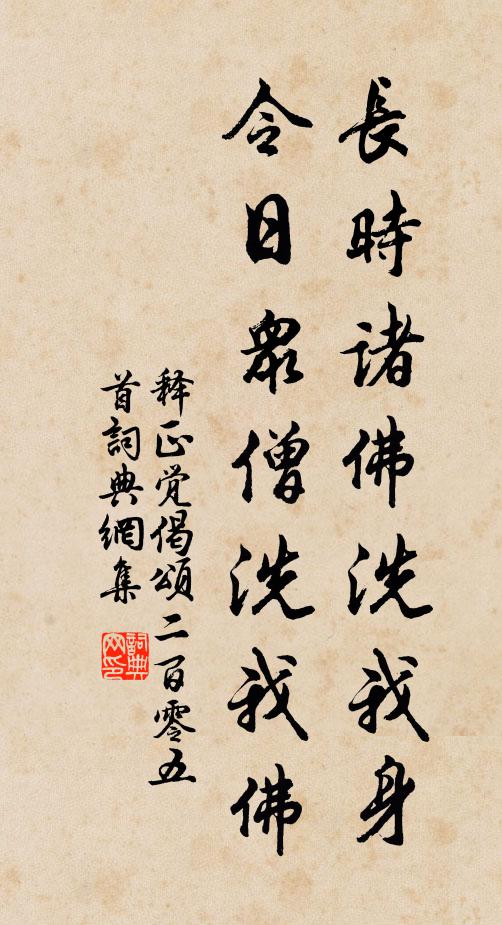 長時諸佛洗我身
今日眾僧洗我佛
释正觉偈頌二百零五
首詞典網集
詞典网印